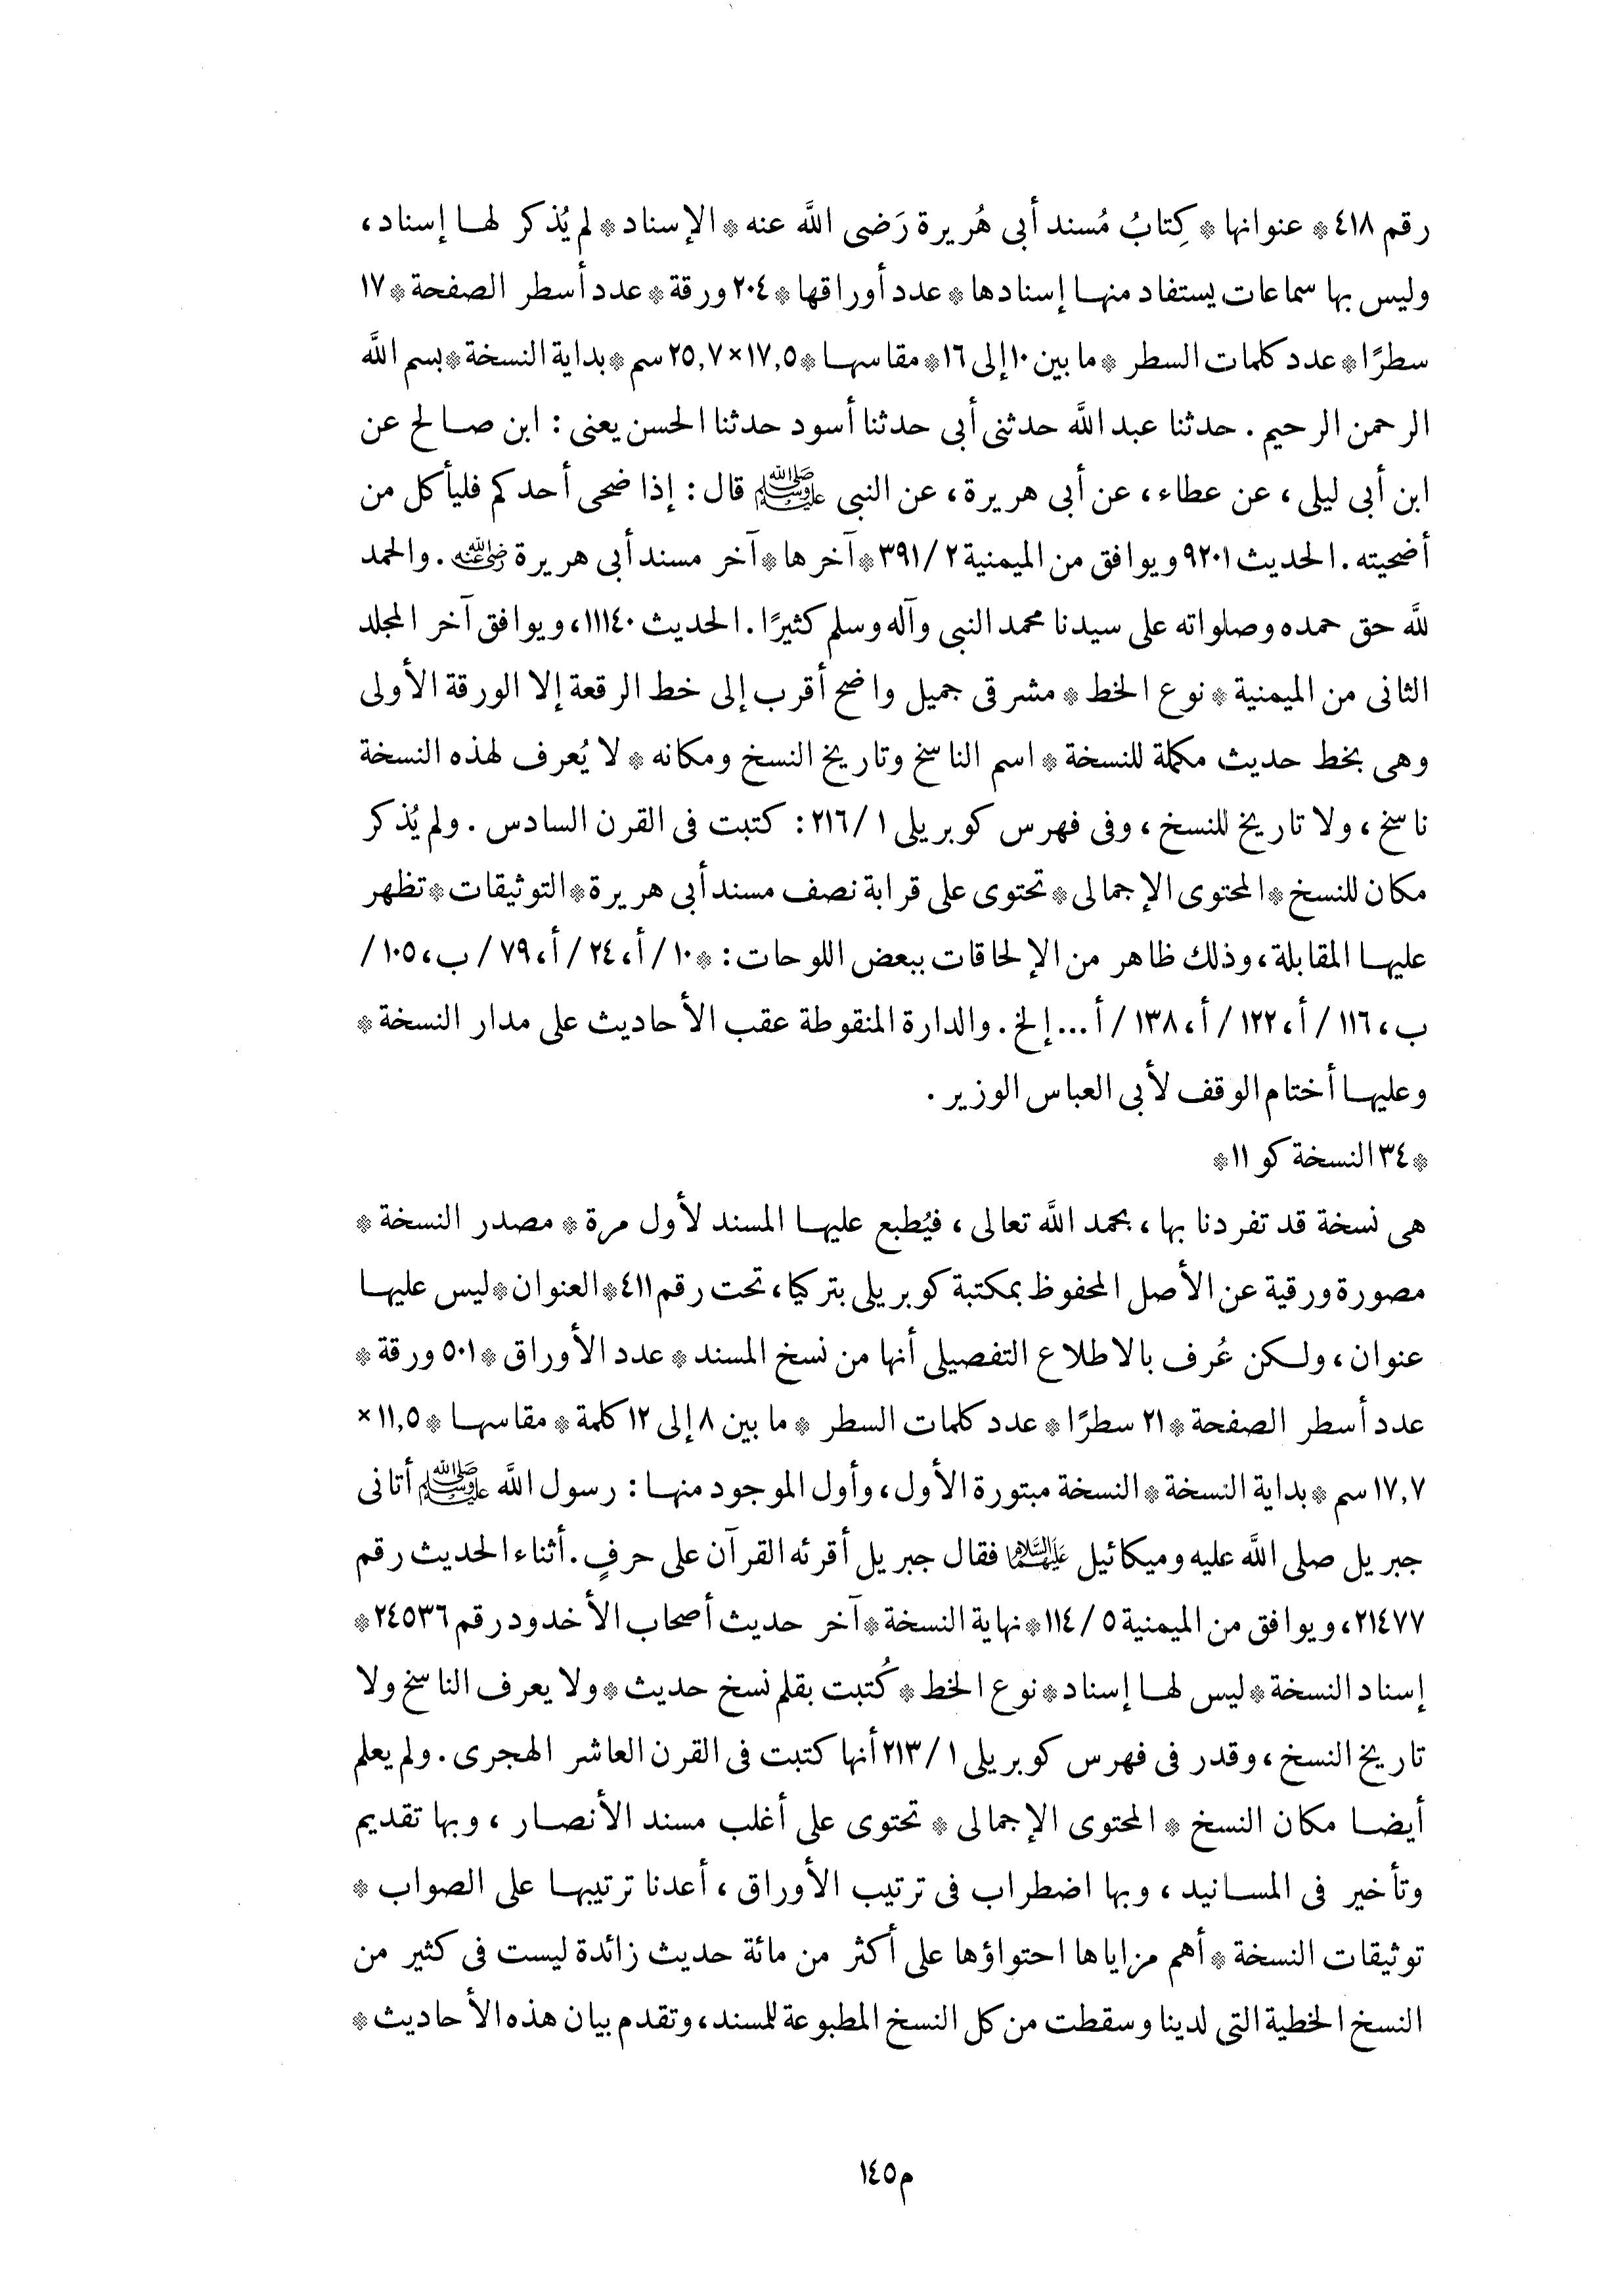 رقم ٤١٨ * عنوانها * كِتابُ مُسند أبى هُريرة رَضى اللَّه عنه * الإسناد * لم يُذكر لها إسناد،
وليس بها سماعات يستفاد منها إسنادها * عدد أوراقها * ٢٠٤ ورقة * عدد أسطر الصفحة * ١٧
سطرًا * عدد كلمات السطر * ما بين ١٠ إلى ١٦ * مقاسها * ١٧,٥ × ٢٥,٧ سم * بداية النسخة * بسم اللَّه
الرحمن الرحيم . حدثنا عبد اللَّه حدثنى أبى حدثنا أسود حدثنا الحسن يعنى : ابن صالح عن
ابن أبى ليلى ، عن عطاء ، عن أبى هريرة ، عن النبى ﷺ قال : إذا ضحى أحدكم فليأكل من
أضحيته . الحديث ٩٢٠١ ويوافق من الميمنية ٢ / ٣٩١ * آخرها * آخر مسند أبى هريرة رضي الله عنه . والحمد
للَّه حق حمده وصلواته على سيدنا محمد النبى وآله وسلم كثيرًا . الحديث ١١١٤٠ ، ويوافق آخر المجلد
الثانى من الميمنية * نوع الخط * مشرقى جميل واضح أقرب إلى خط الرقعة إلا الورقة الأولى
وهى بخط حديث مكملة للنسخة * اسم الناسخ وتاريخ النسخ ومكانه * لا يُعرف لهذه النسخة
ناسخ ، ولا تاريخ للنسخ ، وفى فهرس كوبريلى ١ / ٢١٦ : كتبت فى القرن السادس . ولم يُذكر
مكان للنسخ * المحتوى الإجمالى * تحتوى على قرابة نصف مسند أبى هريرة * التوثيقات * تظهر
عليها المقابلة ، وذلك ظاهر من الإلحاقات ببعض اللوحات : * ١٠ / أ ، ٢٤ / أ ، ٧٩ / ب ، ١٠٥ /
ب ، ١١٦ / أ ، ١٢٢ / أ ، ١٣٨ / أ ... إلخ . والدارة المنقوطة عقب الأحاديث على مدار النسخة *
وعليها أختام الوقف لأبى العباس الوزير .
* ٣٤ النسخة كو ١١ *
هى نسخة قد تفردنا بها ، بحمد اللَّه تعالى ، فيُطبع عليها المسند لأول مرة * مصدر النسخة *
مصورة ورقية عن الأصل المحفوظ بمكتبة كوبريلى بتركيا ، تحت رقم ٤١١ * العنوان * ليس عليها
عنوان ، ولكن عُرف بالاطلاع التفصيلى أنها من نسخ المسند * عدد الأوراق * ٥٠١ ورقة *
عدد أسطر الصفحة * ٢١ سطرًا * عدد كلمات السطر * ما بين ٨ إلى ١٢ كلمة * مقاسها * ١١,٥ ×
١٧,٧ سم * بداية النسخة * النسخة مبتورة الأول ، وأول الموجود منها : رسول اللَّه ﷺ أتانى
جبريل صلى اللَّه عليه وميكائيل عليهما السلام فقال جبريل أقرئه القرآن على حرفٍ . أثناء الحديث رقم
٢١٤٧٧ ، ويوافق من الميمنية ٥ / ١١٤ * نهاية النسخة * آخر حديث أصحاب الأخدود رقم ٢٤٥٣٦ *
إسناد النسخة * ليس لها إسناد * نوع الخط * كُتبت بقلم نسخ حديث * ولا يعرف الناسخ ولا
تاريخ النسخ ، وقدر فى فهرس كوبريلى ١ / ٢١٣ أنها كتبت فى القرن العاشر الهجرى . ولم يعلم
أيضا مكان النسخ * المحتوى الإجمالى * تحتوى على أغلب مسند الأنصار ، وبها تقديم
وتأخير فى المسانيد ، وبها اضطراب فى ترتيب الأوراق ، أعدنا ترتيبها على الصواب *
توثيقات النسخة * أهم مزاياها احتواؤها على أكثر من مائة حديث زائدة ليست فى كثير من
النسخ الخطية التى لدينا وسقطت من كل النسخ المطبوعة للمسند ، وتقدم بيان هذه الأحاديث *
م ١٤٥